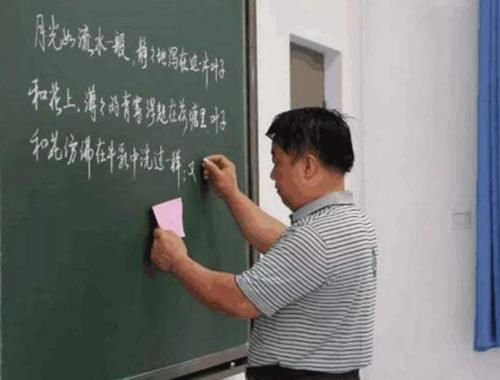 月光如流水一般，静々地泻在这一片叶子
和花上，薄々的青雾浮起在荷塘里叶子
和花仿佛在牛乳中洗过一样；又